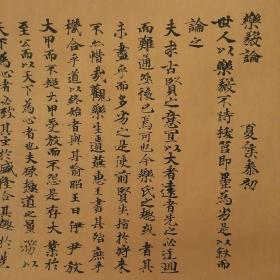 樂毅論 夏侯泰初
世人以樂毅不時拔莒即墨為劣是以叙而
論之
夫求古賢之意宜以大者遠者先之必迂迴
而難通然後已焉可也今樂氏之趣或者其
未盡乎而多劣之是使前賢失指於將來
不亦惜哉觀樂生遺燕惠王書其殆庶乎
機合乎道以終始者與其喻昭王曰伊尹放
大甲而不疑大甲受放而不怨是存大業於
至公而以天下為心者也夫欲極道之量務以
天下為心者必致其主於盛隆合其趣於先